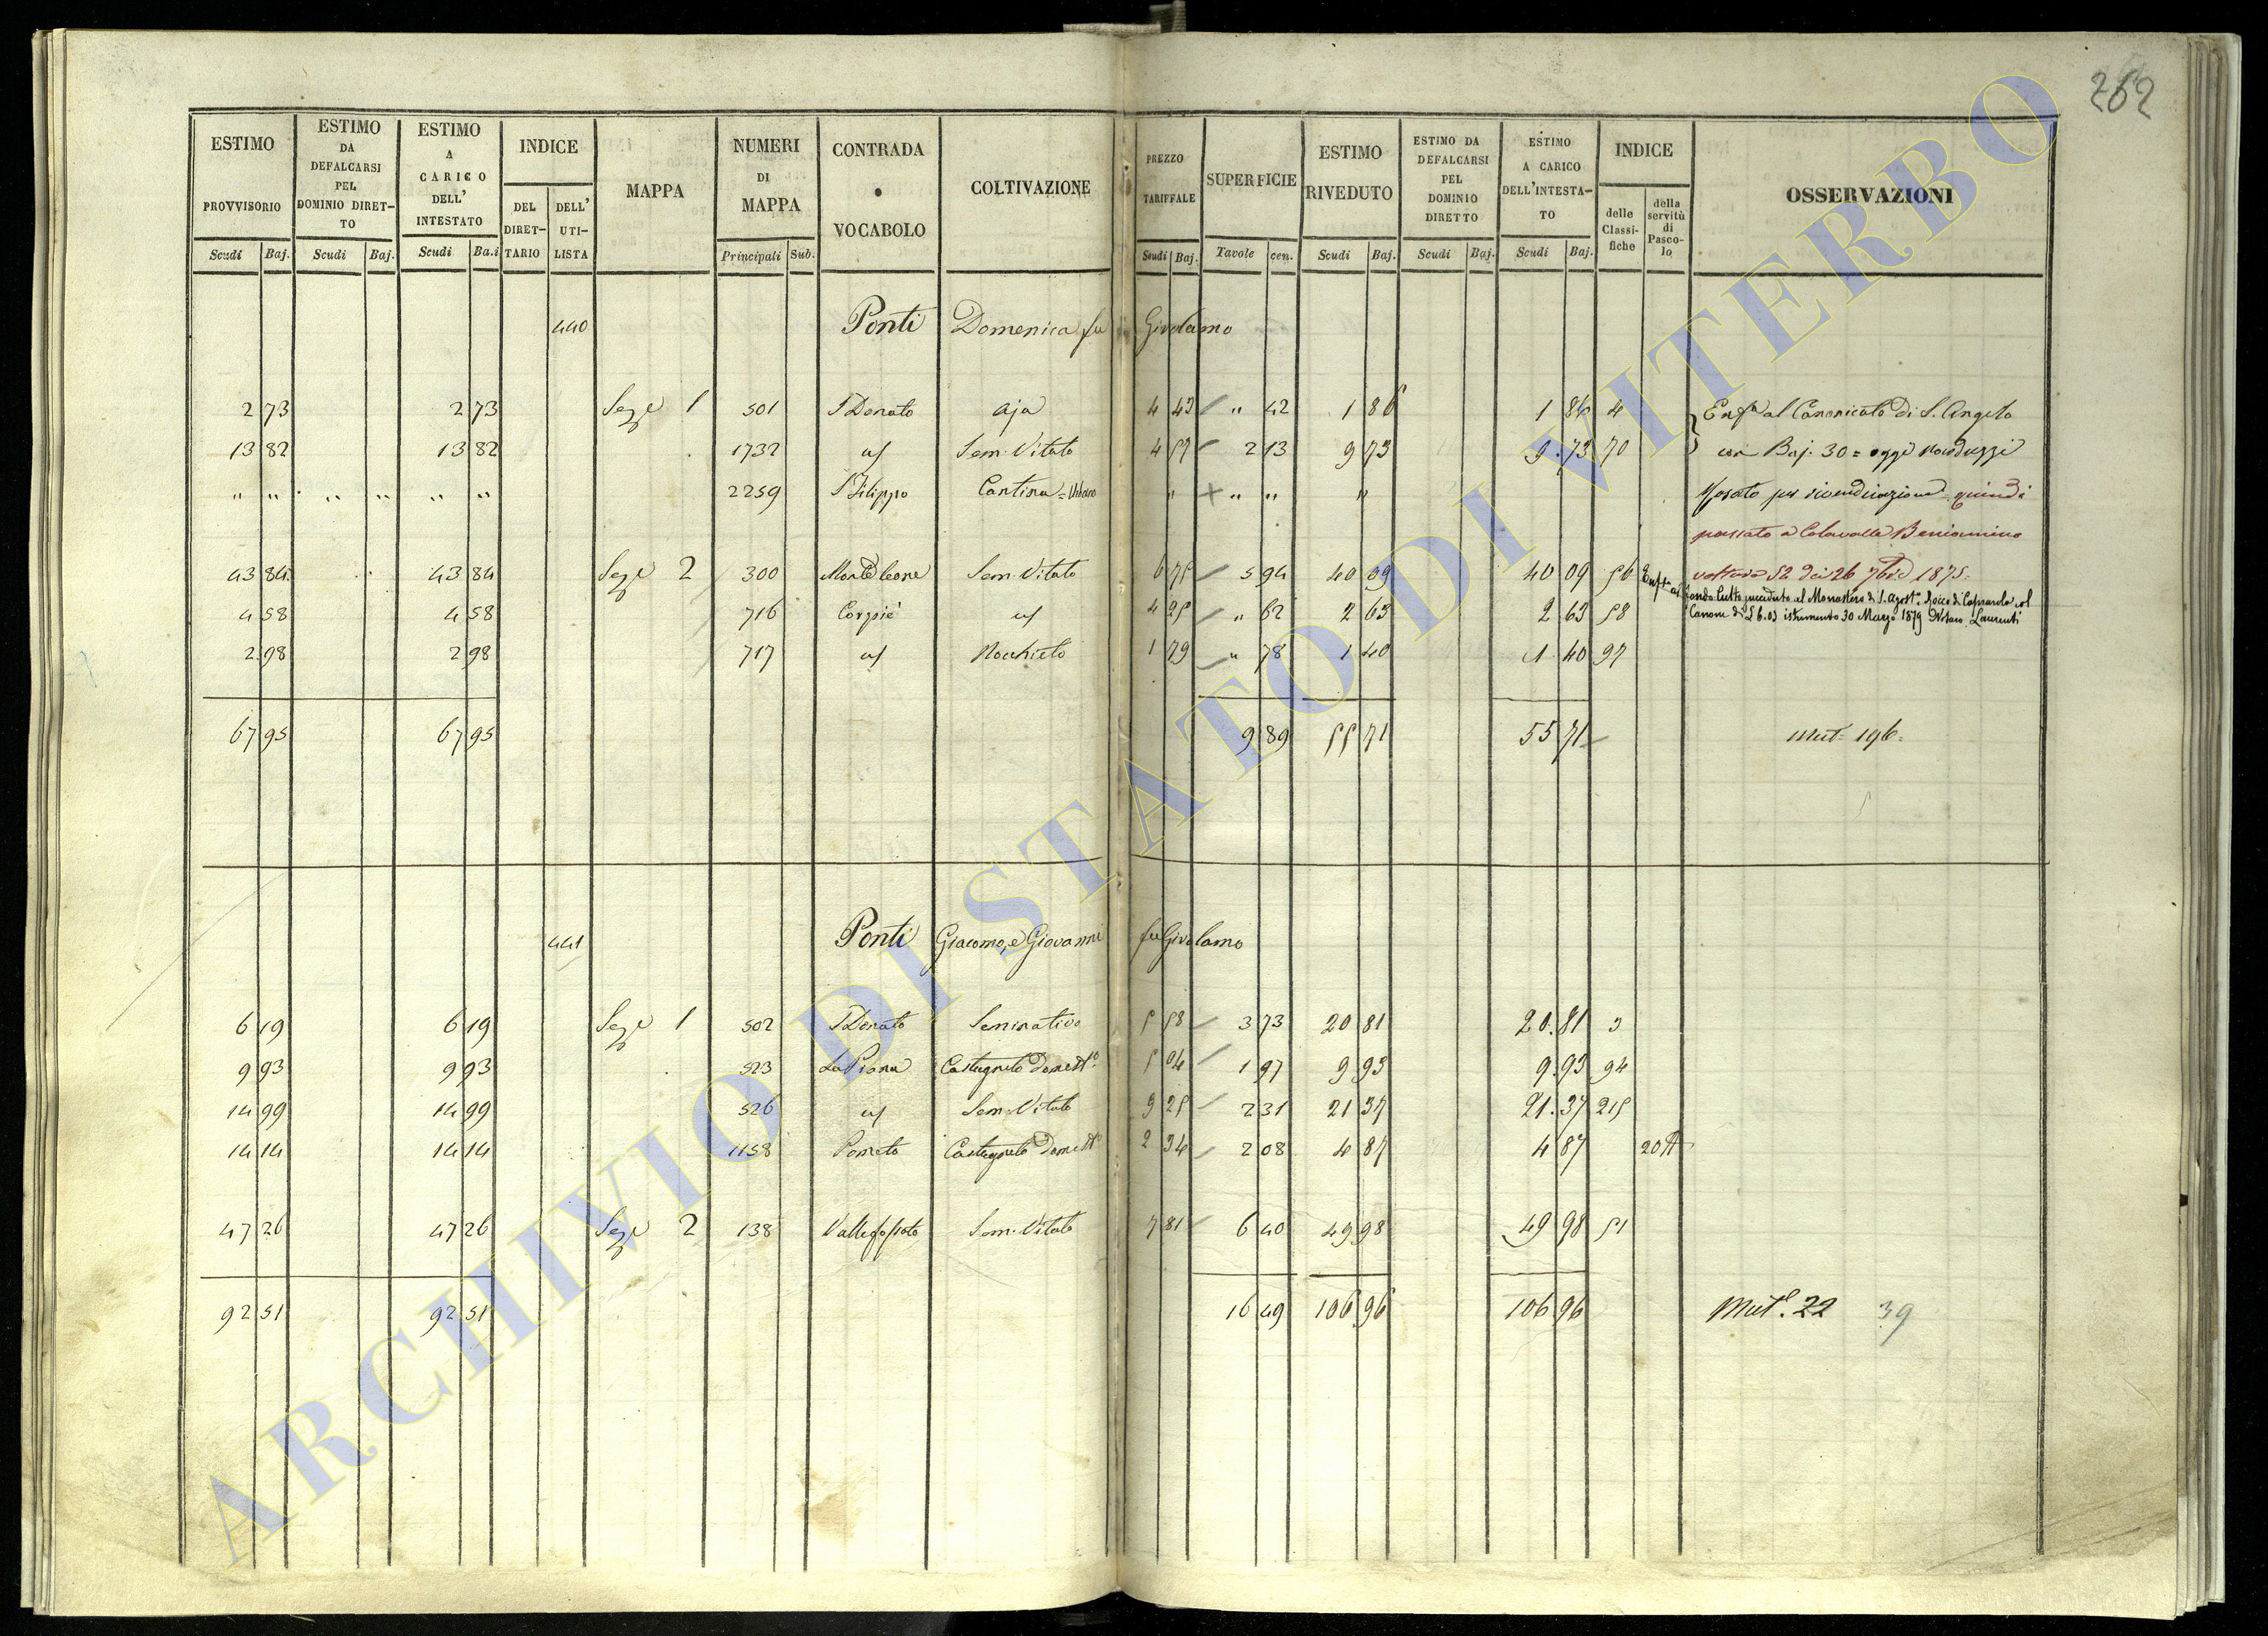 262
ESTIMO PROVVISORIO Scudi Baj.
ESTIMO DA DEFALCARSI PEL DOMINIO DIRET-TO Scudi Baj.
ESTIMO A CARICO DELL' INTESTATO Scudi Ba.i
INDICE DEL DIRET-TARIO DELL' UTI-LISTA
MAPPA
NUMERI DI MAPPA Principali Sub.
CONTRADA o VOCABOLO
COLTIVAZIONE
PREZZO TARIFFALE Scudi Baj.
SUPERFICIE Tavole cen.
ESTIMO RIVEDUTO Scudi Baj.
ESTIMO DA DEFALCARSI PEL DOMINIO DIRETTO Scudi Baj.
ESTIMO A CARICO DELL'INTESTA-TO Scudi Baj.
INDICE delle Classi-fiche della servitù di Pasco-lo
OSSERVAZIONI
440 Ponti Domenica fu Girolamo
2 73 2 73 Sez.e 1 501 S Donato Aja 4 43 " 42 1 86 1 86 4 Enf.a al Canonicato di S. Angelo
13 82 13 82 1732 us Sem. Vitato 4 57 2 13 9 73 9.73 70 con Baj. 30 = oggi
" " " " " " 2259 S Filippo Cantina = Urbano " " " " per rivendicazione quindi
passato a Colavalle Beniamino
43 84 43 84 Sez.e 2 300 Monte leone Sem. Vitato 6 75 5 94 40 09 40 09 56 voltura 52 dei 26 7bre 1875.
4 58 4 58 716 Corpiè us 4 25 " 62 2 63 2 63 58 Enf.a al Fondo Culto succeduto al Monastero di S. Agost.o Rocca di Caprarola col
Canone di £ 6.03 istrumento 30 Marzo 1879 Notaro Laurenti
2 98 2 98 717 us Nocchieto 1 79 " 78 1 40 1 40 97
67 95 67 95 9 89 55 71 55 71 Mut. 196.
441 Ponti Giacomo, e Giovanni fu Girolamo
6 19 6 19 Sez.e 1 502 S Donato Seminativo 5 58 3 73 20 81 20.81 3
9 93 9 93 523 La Piana Castagneto Domest.o 5 04 1 97 9 93 9.93 94
14 99 14 99 526 us Sem. Vitato 9 25 2 31 21 37 21.37 215
14 14 14 14 1158 Poneto Castagneto Domest.o 2 34 2 08 4 87 4 87 20
47 26 47 26 Sez.e 2 138 Vallefossato Sem. Vitato 7 81 6 40 49 98 49 98 51
92 51 92 51 16 49 106 96 106 96 Mut.e 22 39
ARCHIVIO DI STATO DI VITERBO